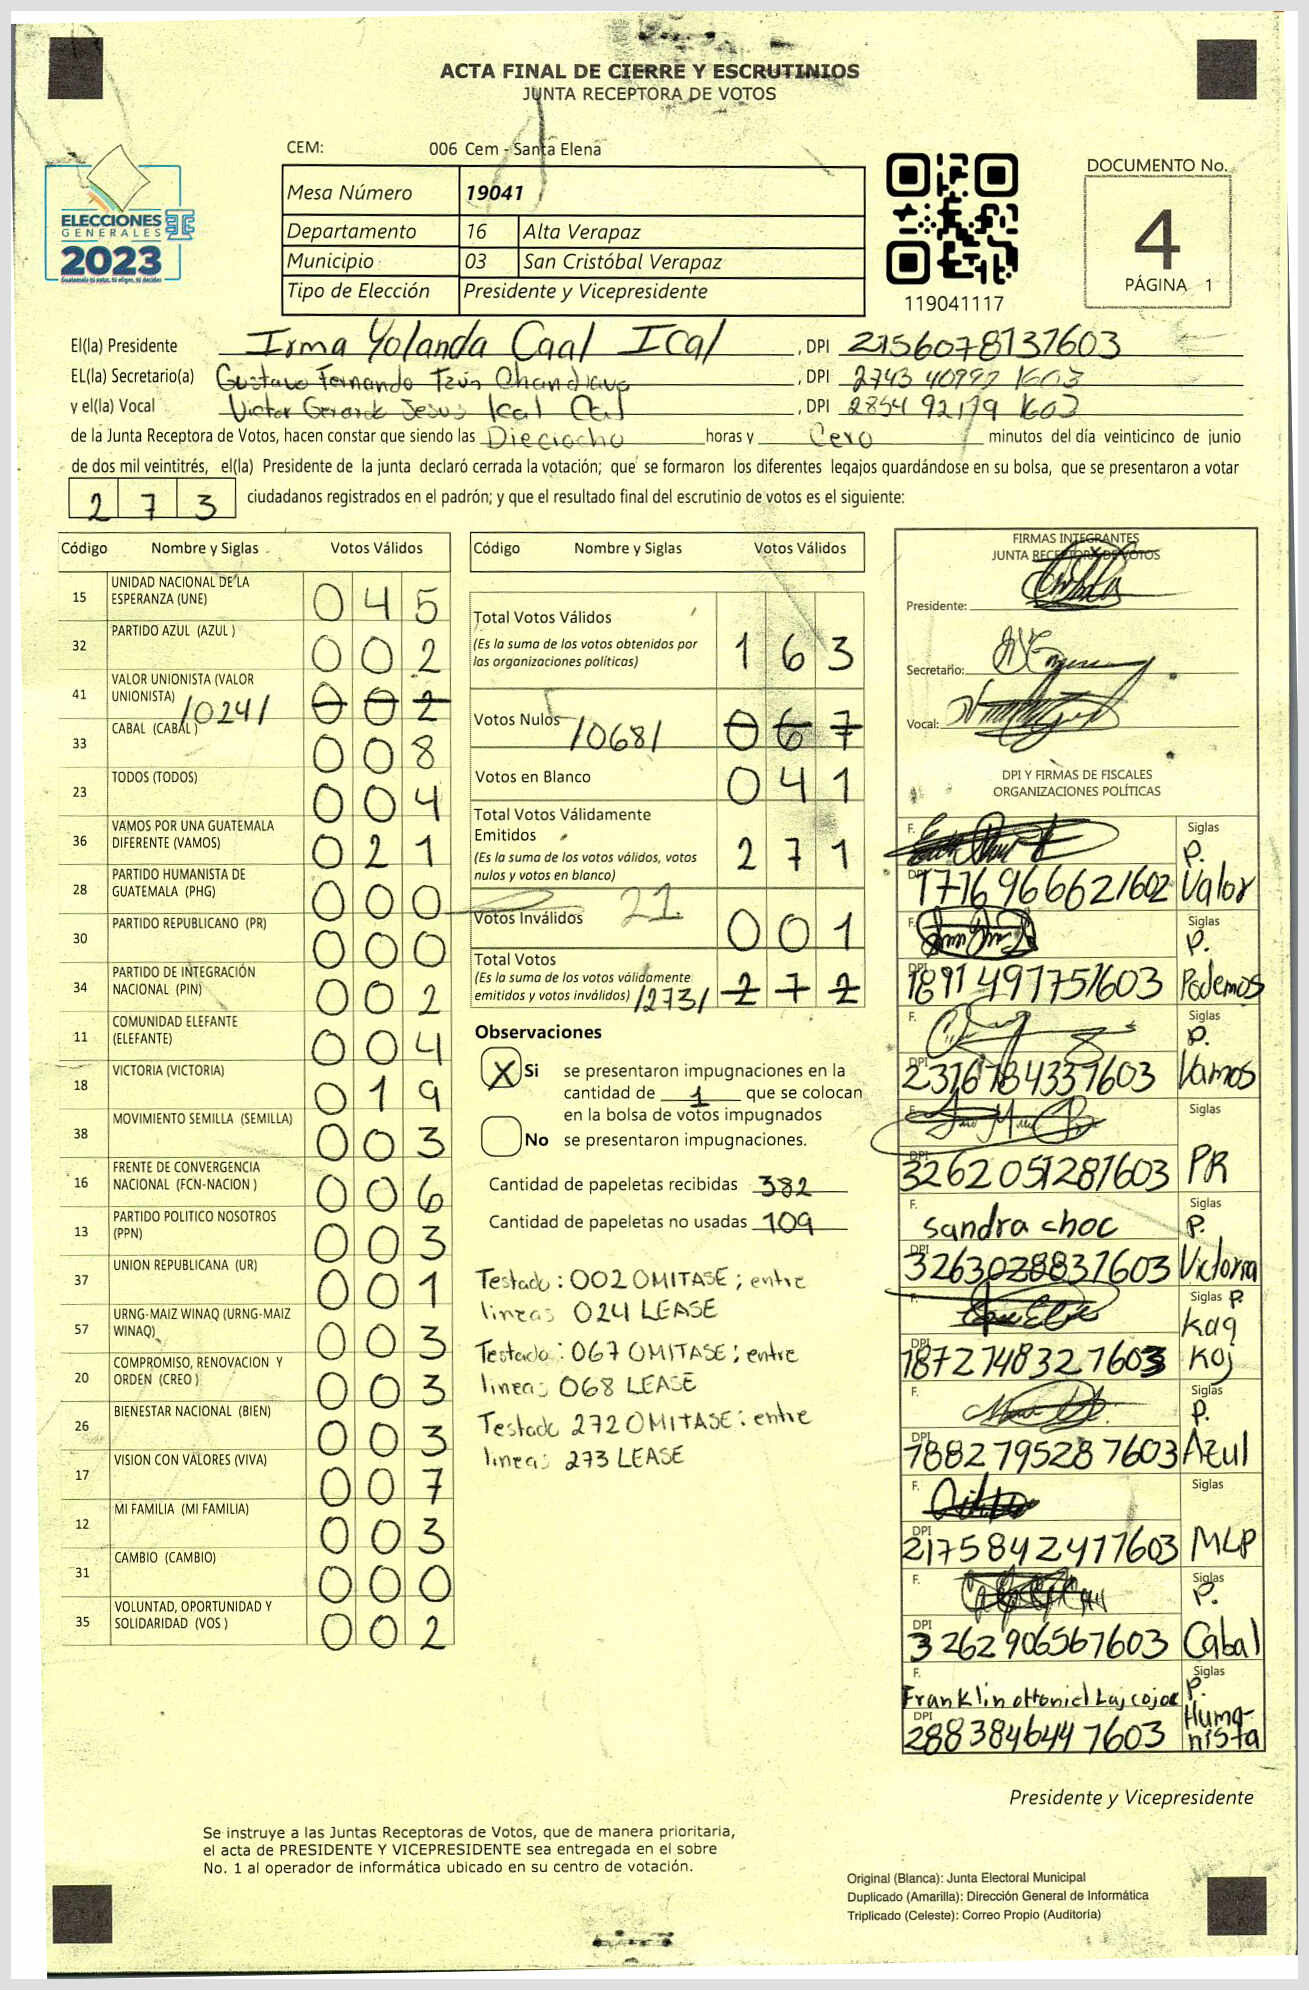 ACTA FINAL DE CIERRE Y ESCRUTINIOS
JUNTA RECEPTORA DE VOTOS
CEM: 006 Cem - Santa Elena
ELECCIONES
GENERALES
2023
Mesa Número 19041
Departamento 16 Alta Verapaz
Municipio 03 San Cristóbal Verapaz
Tipo de Elección Presidente y Vicepresidente
119041117
DOCUMENTO No.
4
PÁGINA 1
El(la) Presidente Irma Yolanda Caal Ical , DPI 2156078137603
EL(la) Secretario(a) Gustavo Fernando , DPI 2743 40992 1603
y el(la) Vocal Victor Gerardo Jesus Ical Cal , DPI 2854 92179 1603
de la Junta Receptora de Votos, hacen constar que siendo las Dieciocho horas y Cero minutos del día veinticinco de junio
de dos mil veintitrés, el(la) Presidente de la junta declaró cerrada la votación; que se formaron los diferentes legajos guardándose en su bolsa, que se presentaron a votar
2 7 3 ciudadanos registrados en el padrón; y que el resultado final del escrutinio de votos es el siguiente:
Código Nombre y Siglas Votos Válidos
15 UNIDAD NACIONAL DE LA ESPERANZA (UNE) 0 4 5
32 PARTIDO AZUL (AZUL ) 0 0 2
41 VALOR UNIONISTA (VALOR UNIONISTA) /024/ 0 0 2
33 CABAL (CABAL ) 0 0 8
23 TODOS (TODOS) 0 0 4
36 VAMOS POR UNA GUATEMALA DIFERENTE (VAMOS) 0 2 1
28 PARTIDO HUMANISTA DE GUATEMALA (PHG) 0 0 0
30 PARTIDO REPUBLICANO (PR) 0 0 0
34 PARTIDO DE INTEGRACIÓN NACIONAL (PIN) 0 0 2
11 COMUNIDAD ELEFANTE (ELEFANTE) 0 0 4
18 VICTORIA (VICTORIA) 0 1 9
38 MOVIMIENTO SEMILLA (SEMILLA) 0 0 3
16 FRENTE DE CONVERGENCIA NACIONAL (FCN-NACION ) 0 0 6
13 PARTIDO POLITICO NOSOTROS (PPN) 0 0 3
37 UNION REPUBLICANA (UR) 0 0 1
57 URNG-MAIZ WINAQ (URNG-MAIZ WINAQ) 0 0 3
20 COMPROMISO, RENOVACION Y ORDEN (CREO ) 0 0 3
26 BIENESTAR NACIONAL (BIEN) 0 0 3
17 VISION CON VALORES (VIVA) 0 0 7
12 MI FAMILIA (MI FAMILIA) 0 0 3
31 CAMBIO (CAMBIO) 0 0 0
35 VOLUNTAD, OPORTUNIDAD Y SOLIDARIDAD (VOS ) 0 0 2
Código Nombre y Siglas Votos Válidos
Total Votos Válidos
(Es la suma de los votos obtenidos por
las organizaciones políticas) 1 6 3
Votos Nulos /068/ 0 6 7
Votos en Blanco 0 4 1
Total Votos Válidamente
Emitidos
(Es la suma de los votos válidos, votos
nulos y votos en blanco) 2 7 1
21
Votos Inválidos 0 0 1
Total Votos
(Es la suma de los votos válidamente
emitidos y votos inválidos) /273/ 2 7 2
Observaciones
X Si se presentaron impugnaciones en la
cantidad de 1 que se colocan
en la bolsa de votos impugnados
No se presentaron impugnaciones.
Cantidad de papeletas recibidas 382
Cantidad de papeletas no usadas 109
Testado: 002 OMITASE; entre
lineas 024 LEASE
Testado: 067 OMITASE; entre
lineas 068 LEASE
Testado 272 OMITASE; entre
lineas 273 LEASE
FIRMAS INTEGRANTES
JUNTA RECEPTORA DE VOTOS
Presidente:
Secretario:
Vocal:
DPI Y FIRMAS DE FISCALES
ORGANIZACIONES POLÍTICAS
F. Siglas
DPI 1716966621602 P. Valor
F. Siglas
DPI 1891491751603 P. Podemos
F. Siglas
DPI 2316784337603 P. Vamos
F. Siglas
DPI 3262051281603 PR
F. sandra choc Siglas
DPI 3263028837603 P. Victoria
F. Siglas
DPI 1872748327603 P. Kaq Koj
F. Siglas
DPI 1882795287603 P. Azul
F. Siglas
DPI 2175842417603 MLP
F. Siglas
DPI 3262906567603 P. Cabal
F. Franklin ottoniel Siglas
DPI 2883846447603 P. Huma-
nista
Presidente y Vicepresidente
Se instruye a las Juntas Receptoras de Votos, que de manera prioritaria,
el acta de PRESIDENTE Y VICEPRESIDENTE sea entregada en el sobre
No. 1 al operador de informática ubicado en su centro de votación.
Original (Blanca): Junta Electoral Municipal
Duplicado (Amarilla): Dirección General de Informática
Triplicado (Celeste): Correo Propio (Auditoría)